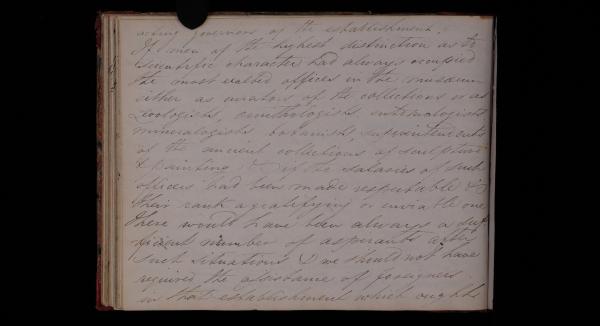 acting governors of the establishment.
If men of the highest distinction as to
scientific character had always occupied
the most exalted offices in the museum
either as curators of the collections or as
zoologists, ornithologists, entomologists
mineralogists, botanists, superintendents
of the ancient collections of sculpture
& painting &c if the salaries of such
officers had been made respectable &
their rank a gratifying or enviable one
there would have been always a suf
ficient number of aspirants after
such situations & we should not have
required the assistance of foreigners
in that establishment which ought